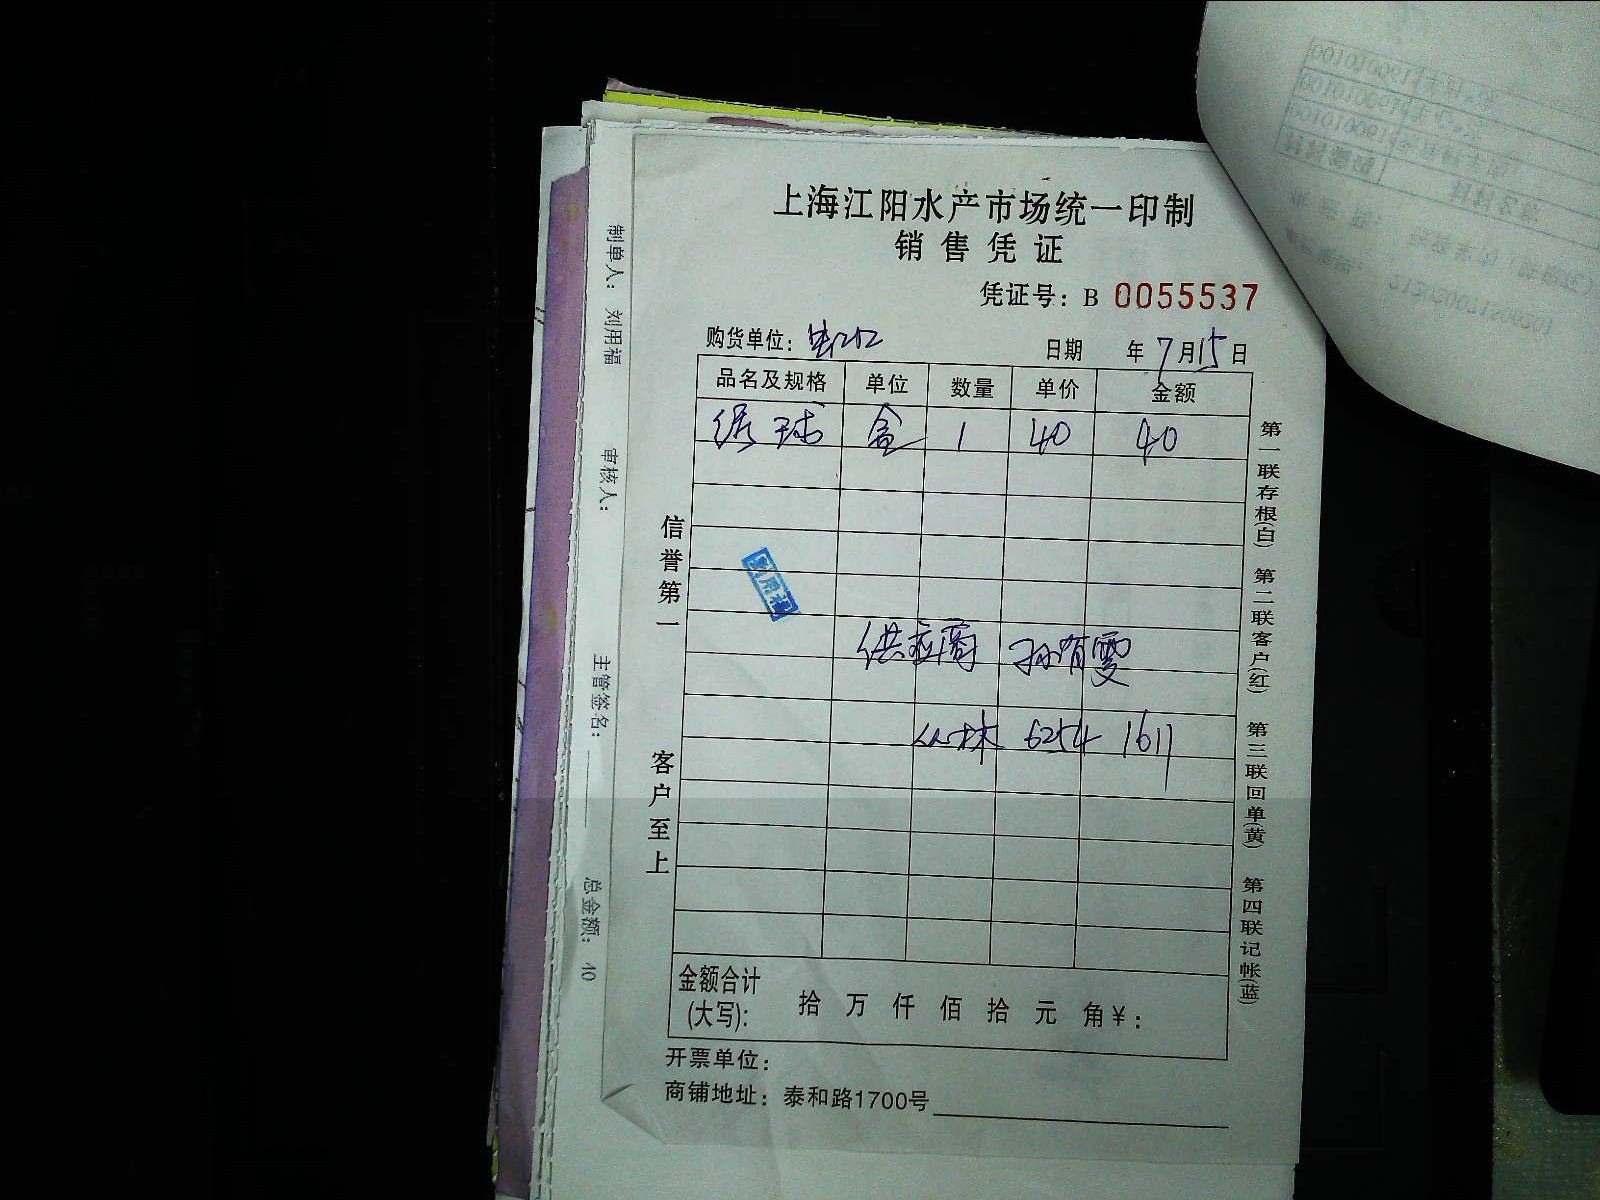 上海江阳水产市场统一印制
销售凭证
凭证号：B 0055537
购货单位：
日期 年 7 月 15 日
品名及规格 单位 数量 单价 金额
绣球 盒 1 40 40
供应商 孙育雯
丛林 6254 1611
金额合计(大写)： 拾 万 仟 佰 拾 元 角 ¥：
开票单位：
商铺地址：泰和路1700号
信誉第一
客户至上
第一联存根(白) 第二联客户(红) 第三联回单(黄) 第四联记帐(蓝)
制单人： 刘用福 审核人： 主管签名： 总金额： 40
刘用福